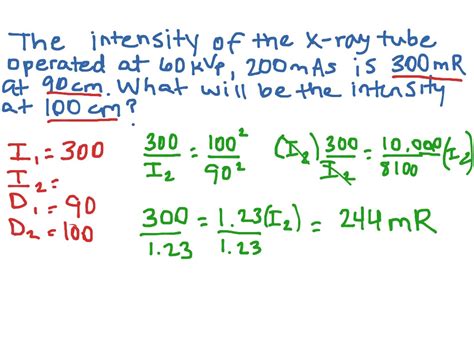 The intensity of the x-ray tube
operated at 60 kVp, 200mAs is 300mR
at 90cm. What will be the intensity
at 100 cm?
I₁ = 300
I₂ =
D₁ = 90
D₂ = 100
300/I₂ = 100²/90²
(I₂) 300/I₂ = 10,000/8100 (I₂)
300/1.23 = 1.23(I₂)/1.23 = 244mR